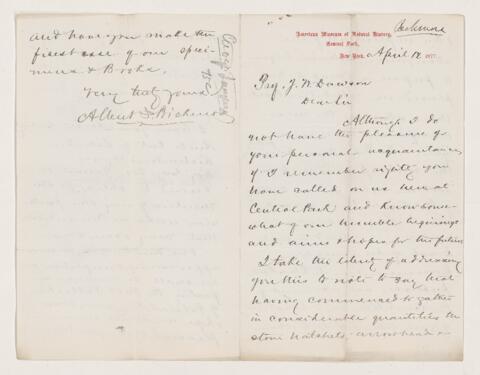 and have you make the
finest use of our speci-
mens & Books.
Very truly yours
Albert S. Bickmore
Bickmore
American Museum of Natural History,
Central Park,
New York, April 12 1877.
Prof. J. W. Dawson
Dear Sir
Although I do
not have the pleasure of
your personal acquaintance
if I remember rightly you
have called on us here at
Central Park and know some-
what of our humble beginings
and aims & hopes for the future
I take the liberty of addressing
you this note to say that
having commenced to gather
in considerable quantities the
stone hatchets, arrowheads